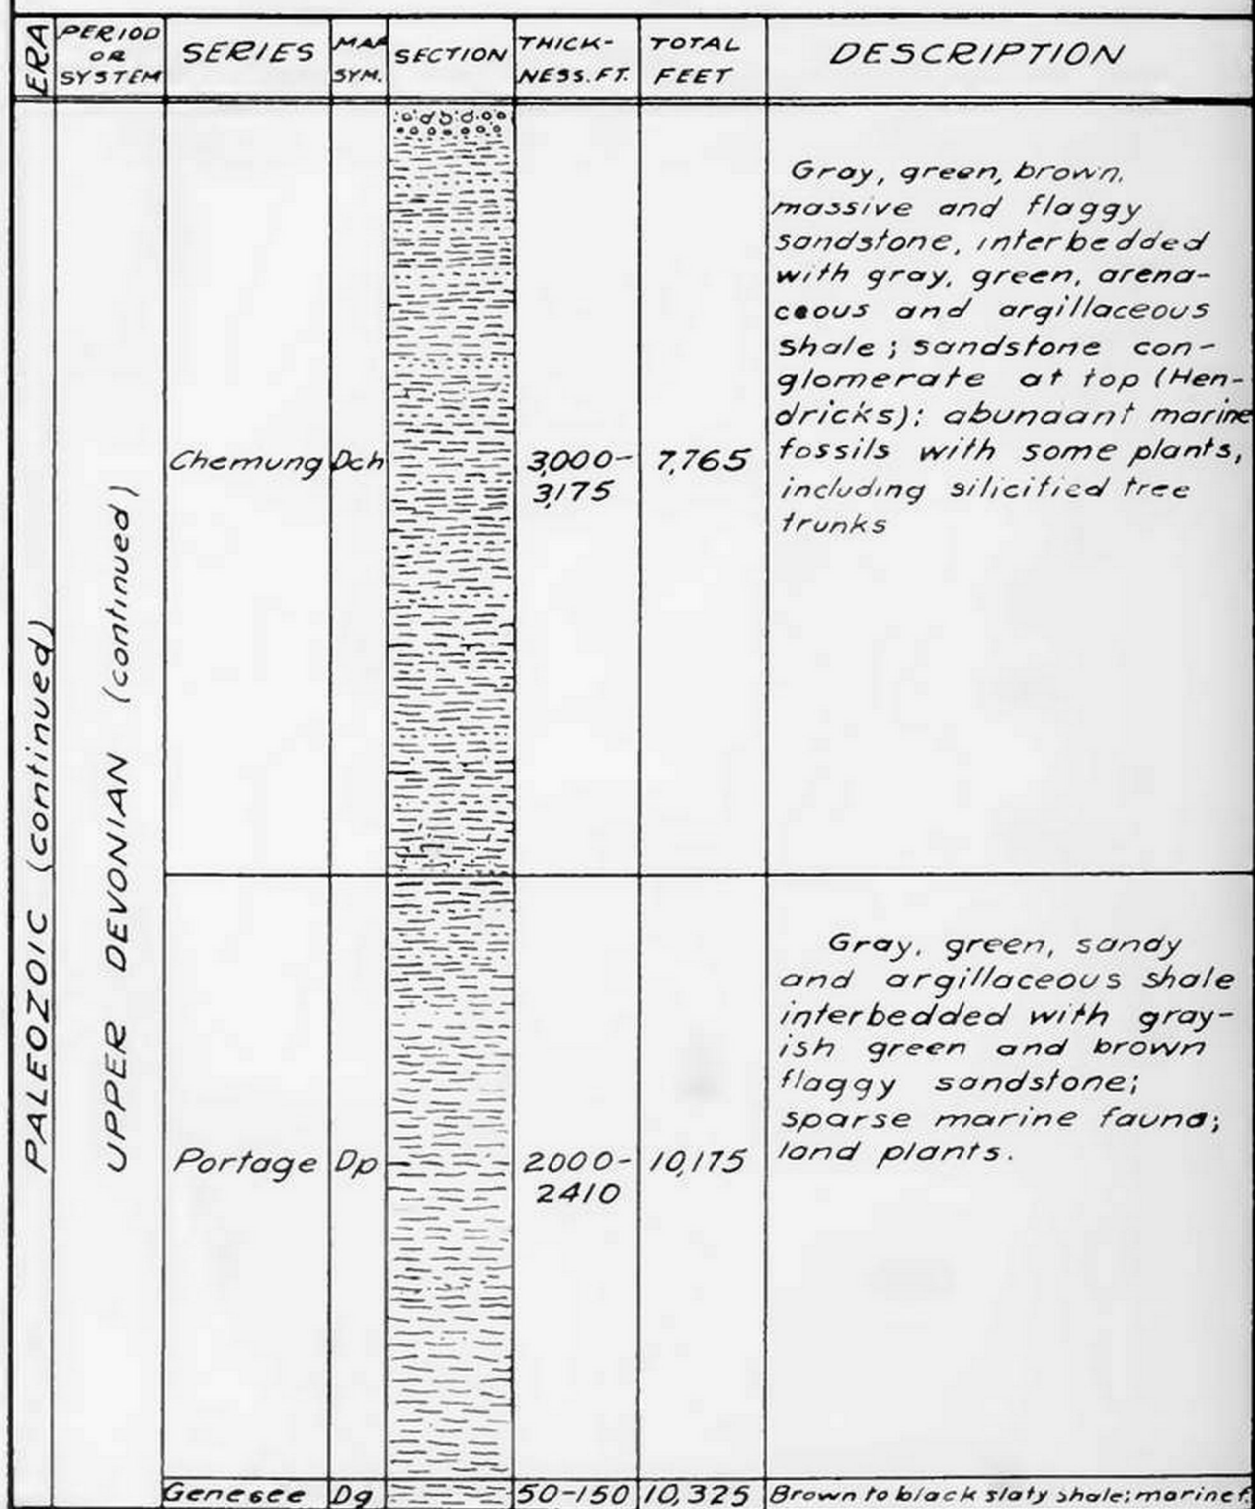 ERA
PERIOD
OR
SYSTEM
SERIES
MAP
SYM.
SECTION
THICK-
NESS. FT.
TOTAL
FEET
DESCRIPTION
PALEOZOIC (continued)
UPPER DEVONIAN (continued)
Chemung
Dch
3,000-
3,175
7,765
Gray, green, brown,
massive and flaggy
sandstone, interbedded
with gray, green, arena-
ceous and argillaceous
shale; sandstone con-
glomerate at top (Hen-
dricks); abundant marine
fossils with some plants,
including silicified tree
trunks
Portage
Dp
2000-
2410
10,175
Gray, green, sandy
and argillaceous shale
interbedded with gray-
ish green and brown
flaggy sandstone;
sparse marine fauna;
land plants.
Genesee
Dg
50-150
10,325
Brown to black slaty shale; marine f